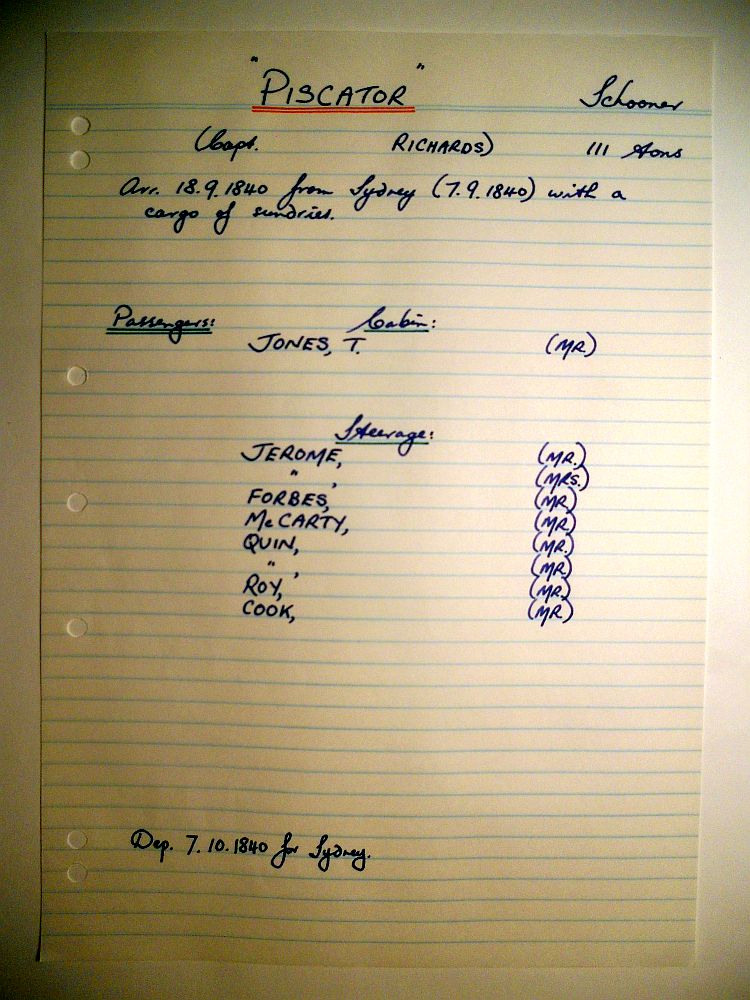 "PISCATOR" Schooner
(Capt. RICHARDS) 111 tons
Arr. 18.9.1840 from Sydney (7.9.1840) with a
cargo of sundries.
Passengers: Cabin:
JONES, T. (MR)
Steerage:
JEROME, (MR.)
" , (MRS.)
FORBES, (MR)
McCARTY, (MR)
QUIN, (MR.)
" , (MR.)
ROY, (MR.)
COOK, (MR)
Dep. 7.10.1840 for Sydney.